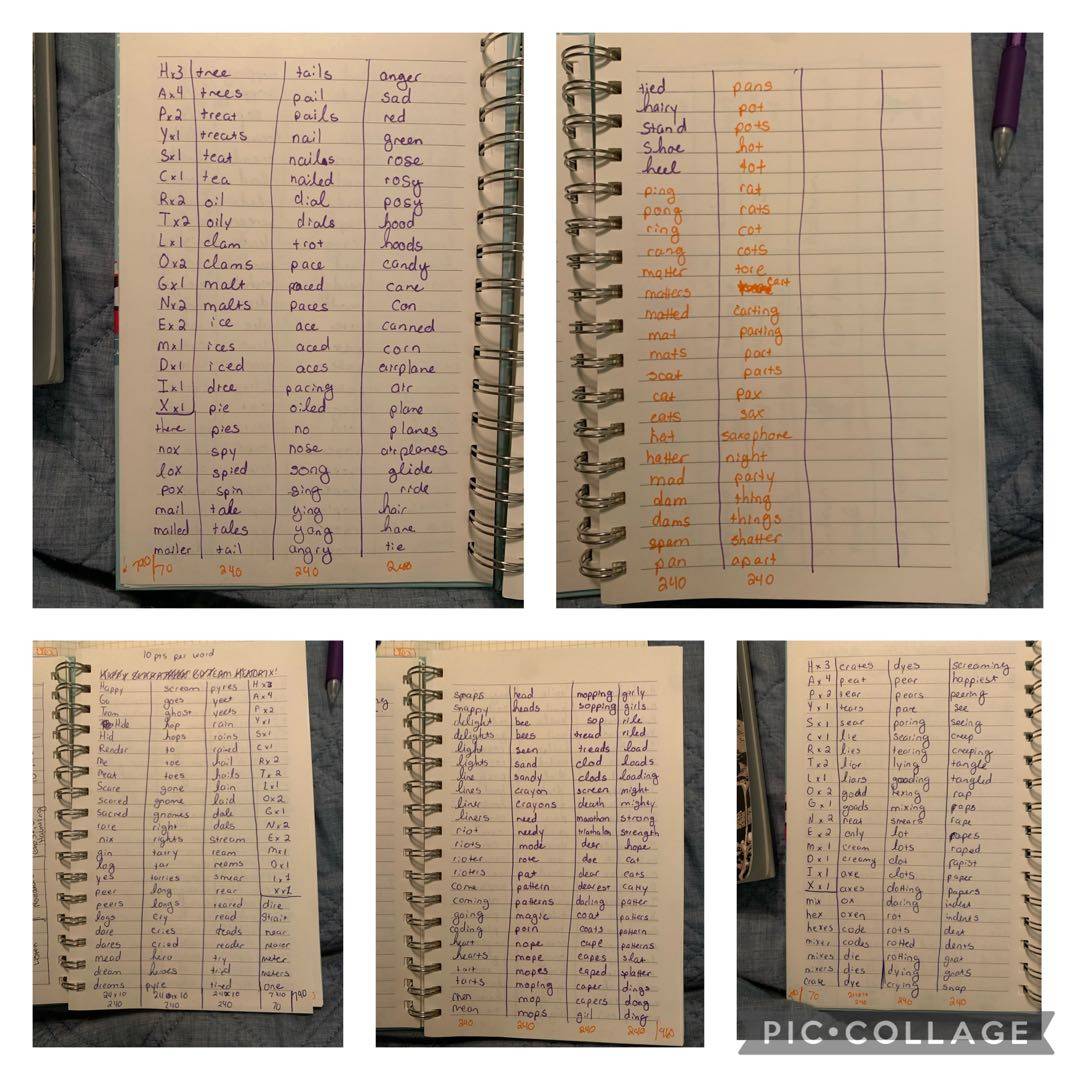 Hx3 tree tails anger
Ax4 trees pail sad
Px2 treat pails red
Yx1 treats nail green
Sx1 teat nails rose
Cx1 tea nailed rosy
Rx2 oil dial posy
Tx2 oily dials hood
Lx1 clam trot hoods
Ox2 clams pace candy
Gx1 malt paced cane
Nx2 malts paces con
Ex2 ice ace canned
mx1 ices aced corn
Dx1 iced aces airplane
Ix1 dice pacing air
Xx1 pie oiled plane
there pies no planes
nox spy nose airplanes
lox spied song glide
pox spin sing ride
mail tale ying hair
mailed tales yang hare
mailer tail angry tie
790 70 240 240 240
tied pans
hairy pot
stand pots
shoe hot
heel tot
ping rat
pong rats
ring cot
rang cots
matter tore
matters cart
matted carting
mat parting
mats part
scat parts
cat pax
cats sax
hat saxophone
hatter night
mad party
dam thing
dams things
spam shatter
pan apart
240 240
10 pts per word
Happy scream pyres Hx3
Go goes yeet Ax4
Team ghost yeets Px2
Hide hop rain Yx1
Hid hops rains Sx1
Render to rained Cx1
me toe hail Rx2
meat toes hails Tx2
Scare gone lain Lx1
scared gnome laid Ox2
sacred gnomes dale Gx1
rare right dals Nx2
nix rights stream Ex2
gin tarry ream mx1
log tar reams Dx1
yes tarries smear Ix1
peer long rear Xx1
peers longs reared dire
logs cry read strait
dare cries reads near
dares cried reader nearer
mead hero try meter
dream heroes tried meters
dreams pyre tired one
24x10 24x10 24x10 7x10
240 240 240 70 790
snaps head mopping girly
snappy heads sopping girls
delight bee sop rile
delights bees tread riled
light seen treads load
lights sand clod loads
line sandy clods loading
lines crayon screen might
liner crayons death mighty
liners need marathon strong
riot needy triathalon strength
riots mode deer hope
rioter rote doe cat
rioters pat dear cats
come pattern dearest catty
coming patterns darling patter
going magic coat patters
coding porn coats pattern
heart nope cape patterns
hearts mope capes slat
tart mopes caped splatter
tarts moping caper dings
man mop capers dong
mean mops girl ding
240 240 240 240 960
Hx3 crates dyes screaming
Ax4 peat pear happiest
Px2 tear pears peering
Yx1 tears pare see
Sx1 sear poring seeing
Cx1 lie searing creep
Rx2 lies tearing creeping
Tx2 liar lying tangle
Lx1 liars goading tangled
Ox2 goad hexing rap
Gx1 goads mixing raps
Nx2 neat smears rape
Ex2 only lot rapes
Mx1 cream lots raped
Dx1 creamy clot rapist
Ix1 axe clots paper
Xx1 axes dotting papers
mix ox daring indent
hex oxen rot indents
hexes code rots dent
mixer codes rotted dents
mixes die rotting goat
mixers dies dying goats
crate dye crying snap
70 240 240 240
PIC•COLLAGE